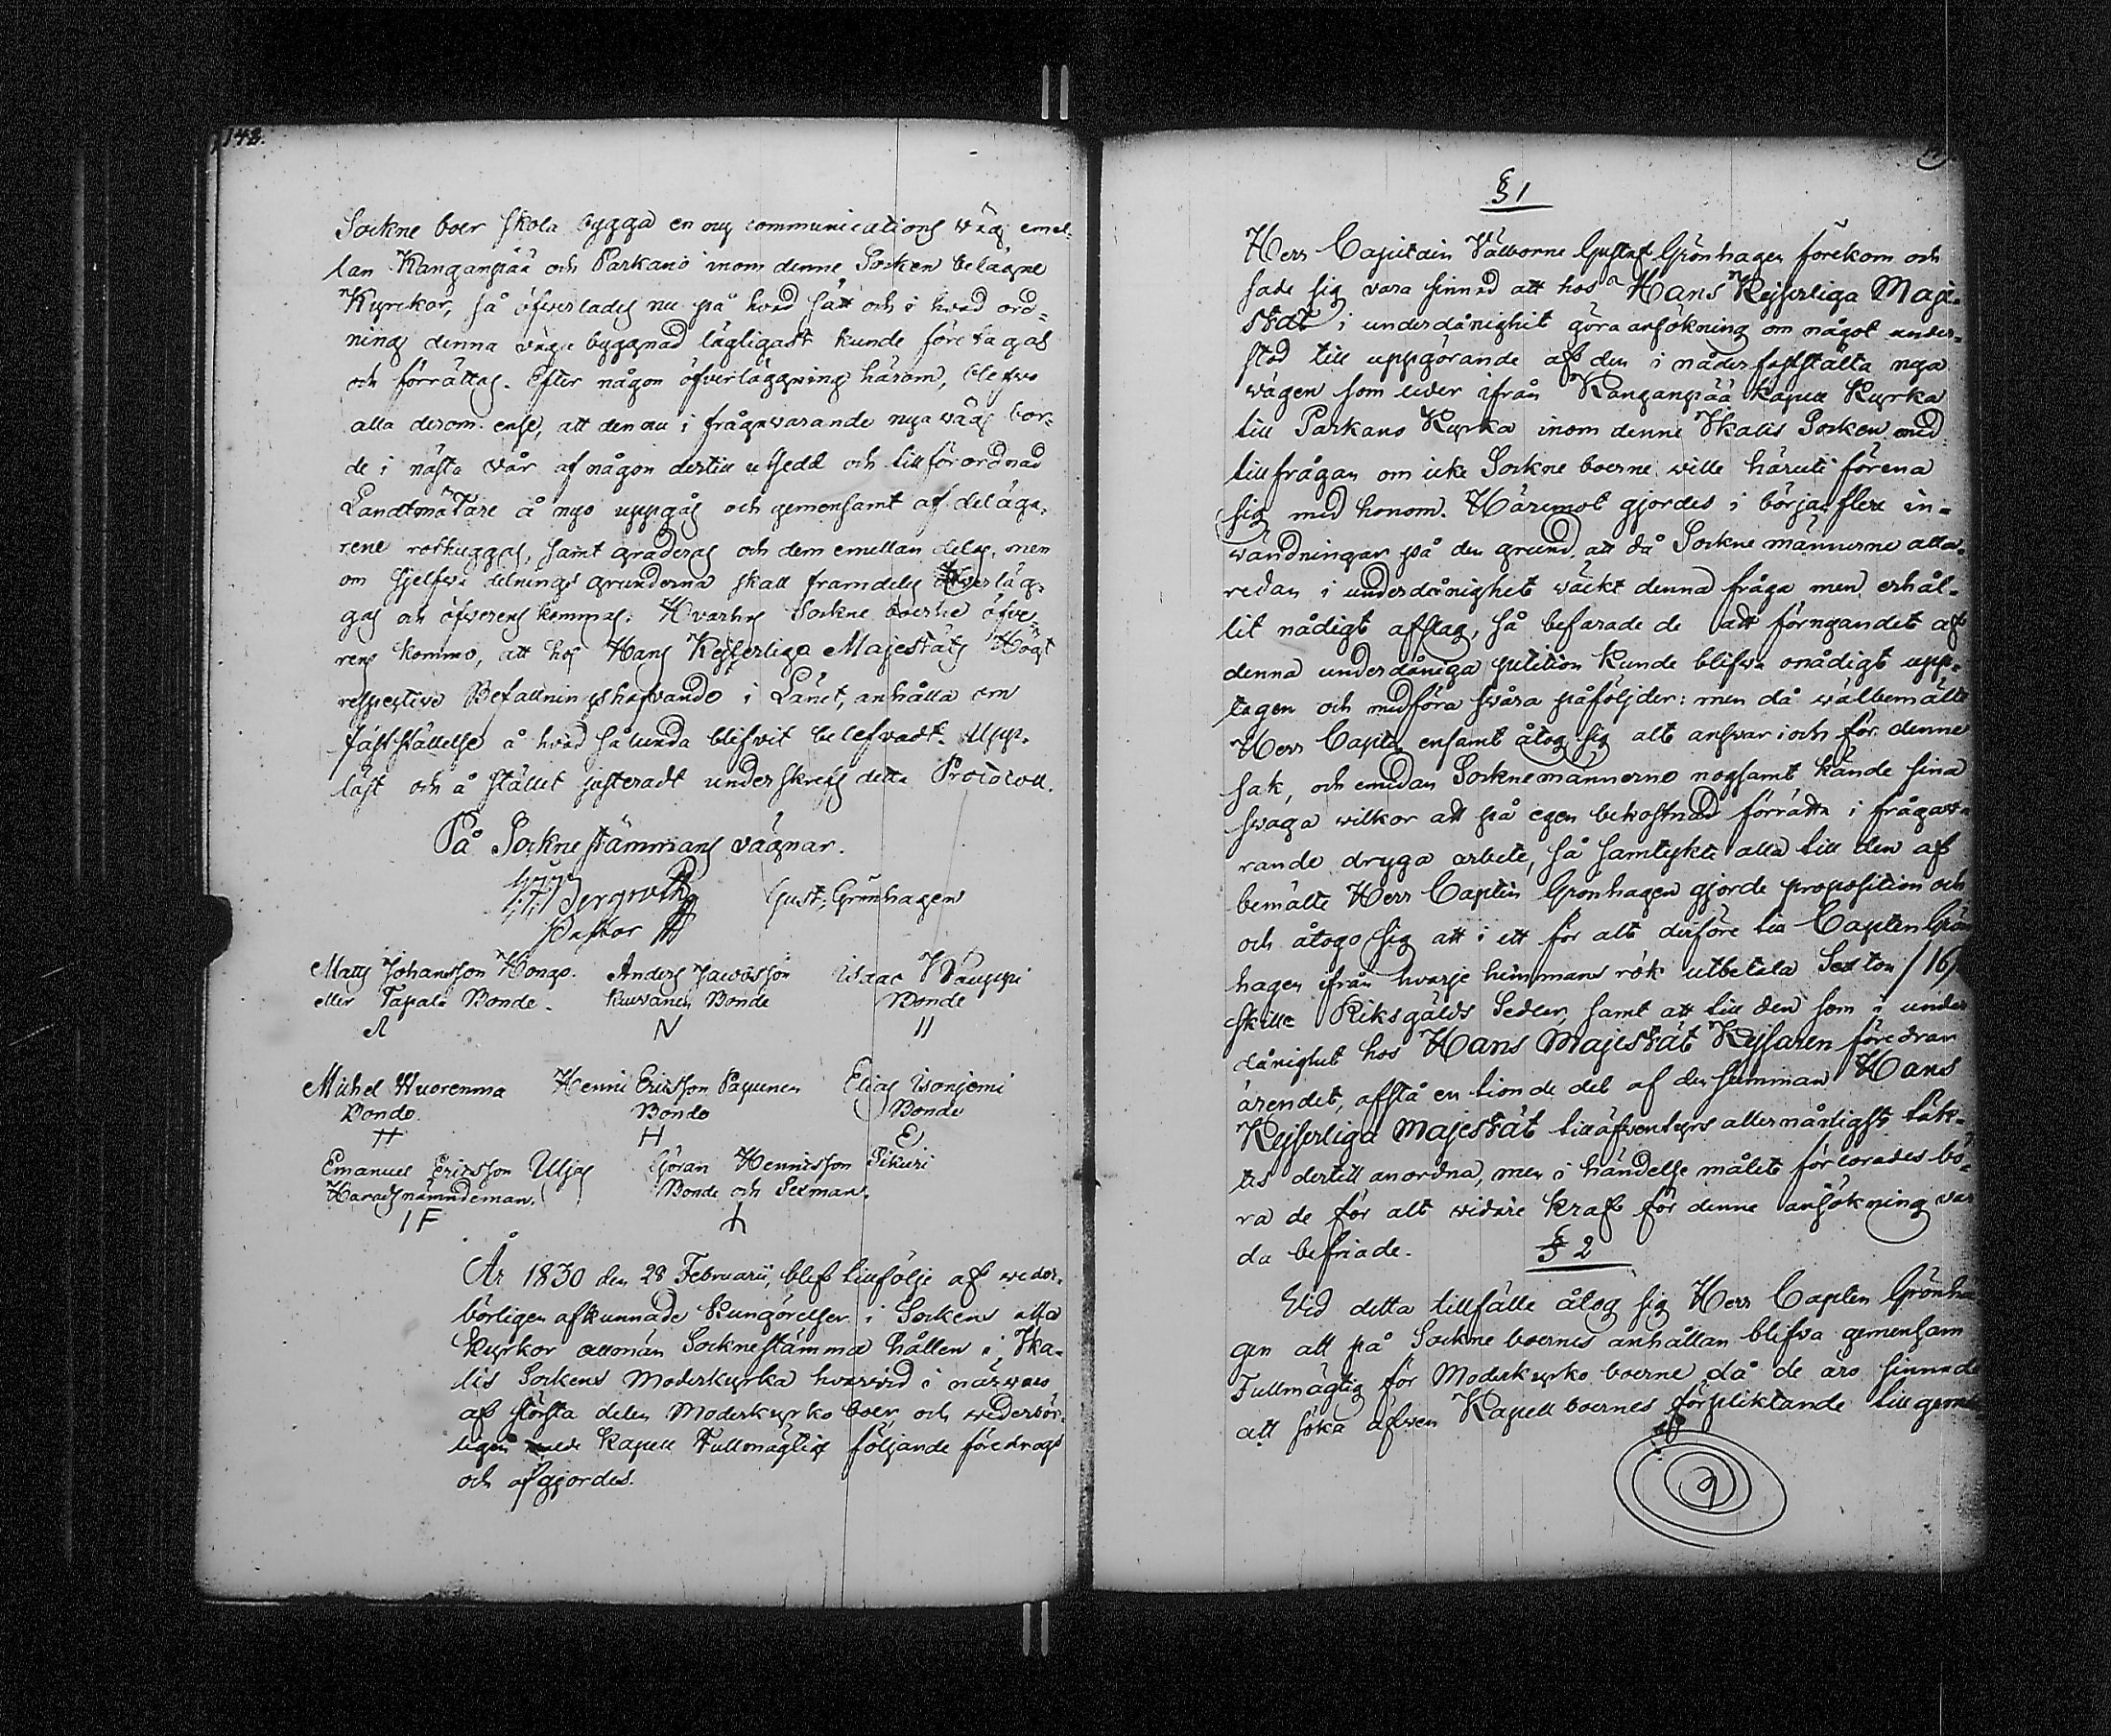 148.
Sockne boer skola bygga en ny communications väg emel-
lan Kanganpää och Parkano inom denne Socken belägne
Kyrckor, så öfverlades nu på hvad sätt och i hvad ord=
ning denna vägs byggnad lägligast kunde företagas
och förrättas. Efter någon öfverläggning härom, blefvo
alla derom ense, att den nu i frågavarande nya väg bor=
de i nästa vår af någon dertill utsedd och till förordnad
Landtmätare å nyo uppgås och gemensamt af delägar-
rene röthuggas, samt graderas och dem emellan delas, men
om sjelfva delnings grunderna skall framdeles öfverläg-
gas och öfverens kommas. Hvarhos Sockne boerne öfve-
rens kommo, att hos Hans Kejserliga Majestäts Högt
respective Befallningshafvande i Länet, anhålla om
fastställelse å hvad sålunda blifvit belefvadt. Upp-
läst och å stället justeradt underskrefs detta Protocoll.
På Sockne stämmans vägnar.
Bergroth Gust: Grönhagen
Pastor
Matts Johansson Kongo. Anders Jacobsson Isaac Kauppi
eller Tapala Bonde. Kuusanen Bonde Bonde
A N II
Michel Wuorenma Henric Ericsson Papunen Elias Isoniemi
Bonde. Bonde Bonde
H H E
Emanuel Ericsson Uljas Göran Henricsson Pikuri
Häradsnämndeman. Bonde och Sexman.
I F
År 1830 den 28 Februarii, blef tillfölje af veder-
börligen afkunnade Kungörelser i Sockens alla
Kyrkor allmän Socknestämma hållen i Ika-
lis Sockens Moderkyrka hvarvid i närvaro
af största delen Moderkyrko boer och vederbör-
ligen Kapell Fullmägtige följande föredrogs
och afgjordes.
§ 1
Herr Capitain Välborne Gustaf Grönhagen förekom och
sade sig vara sinnad att hos Hans Kejserliga Maje-
stät i underdånighet göra ansökning om något under-
stöd till uppgörande af den i nåder fastställta nya
vägen som leder ifrån Kanganpää Kapell Kyrka
till Parkano Kyrka inom denne Ikalis Socken med
tillfrågan om icke Sockne boerne wille häruti förena
sig med honom. Häremot gjordes i början flere in=
wändningar på den grund, att då Sockne männerne alla-
redan i underdånighet väckt denna fråga men erhål-
lit nådigt afslag, så befarade de att förnyandet af
denna underdåniga petition kunde blifva onådigt upp-
tagen och medföra svåra påföljder: men då wälbemälte
Herr Capten ensamt åtog sig alt ansvar i och för denne
sak, och emedan Socknemännerne nogsamt kände sina
swaga wilkor att på egen bekostnad förrätta i frågava-
rande dryga arbete, så samtykte alla till den af
bemälte Herr Capten Grönhagen gjorde proposition och
och åtogo sig att i ett för alt derföre till Capten Grön
hagen ifrån hvarje hemmans rök utbetala Sexton /16/
skill= Riksgälds Sedlar, samt att till den som i under
dånighet hos Hans Majestät Kejsaren föredrar
ärendet, afstå en tionde del af den summan Hans
Kejserliga Majestät tilläfventyrs allernådigst täk-
tes dertill anordna, men i händelse målet förlorades bö-
ra de för alt vidare kraf för denne ansökning var
da befriade.
§ 2
Vid detta tillfälle åtog sig Herr Capten Grönha
gen att på Sockne boernes anhållan blifva gemensam
Fullmägtig för Moderkyrko boerne då de äro sinnade
att söka äfven Kapell boernes förpliktande till gemen